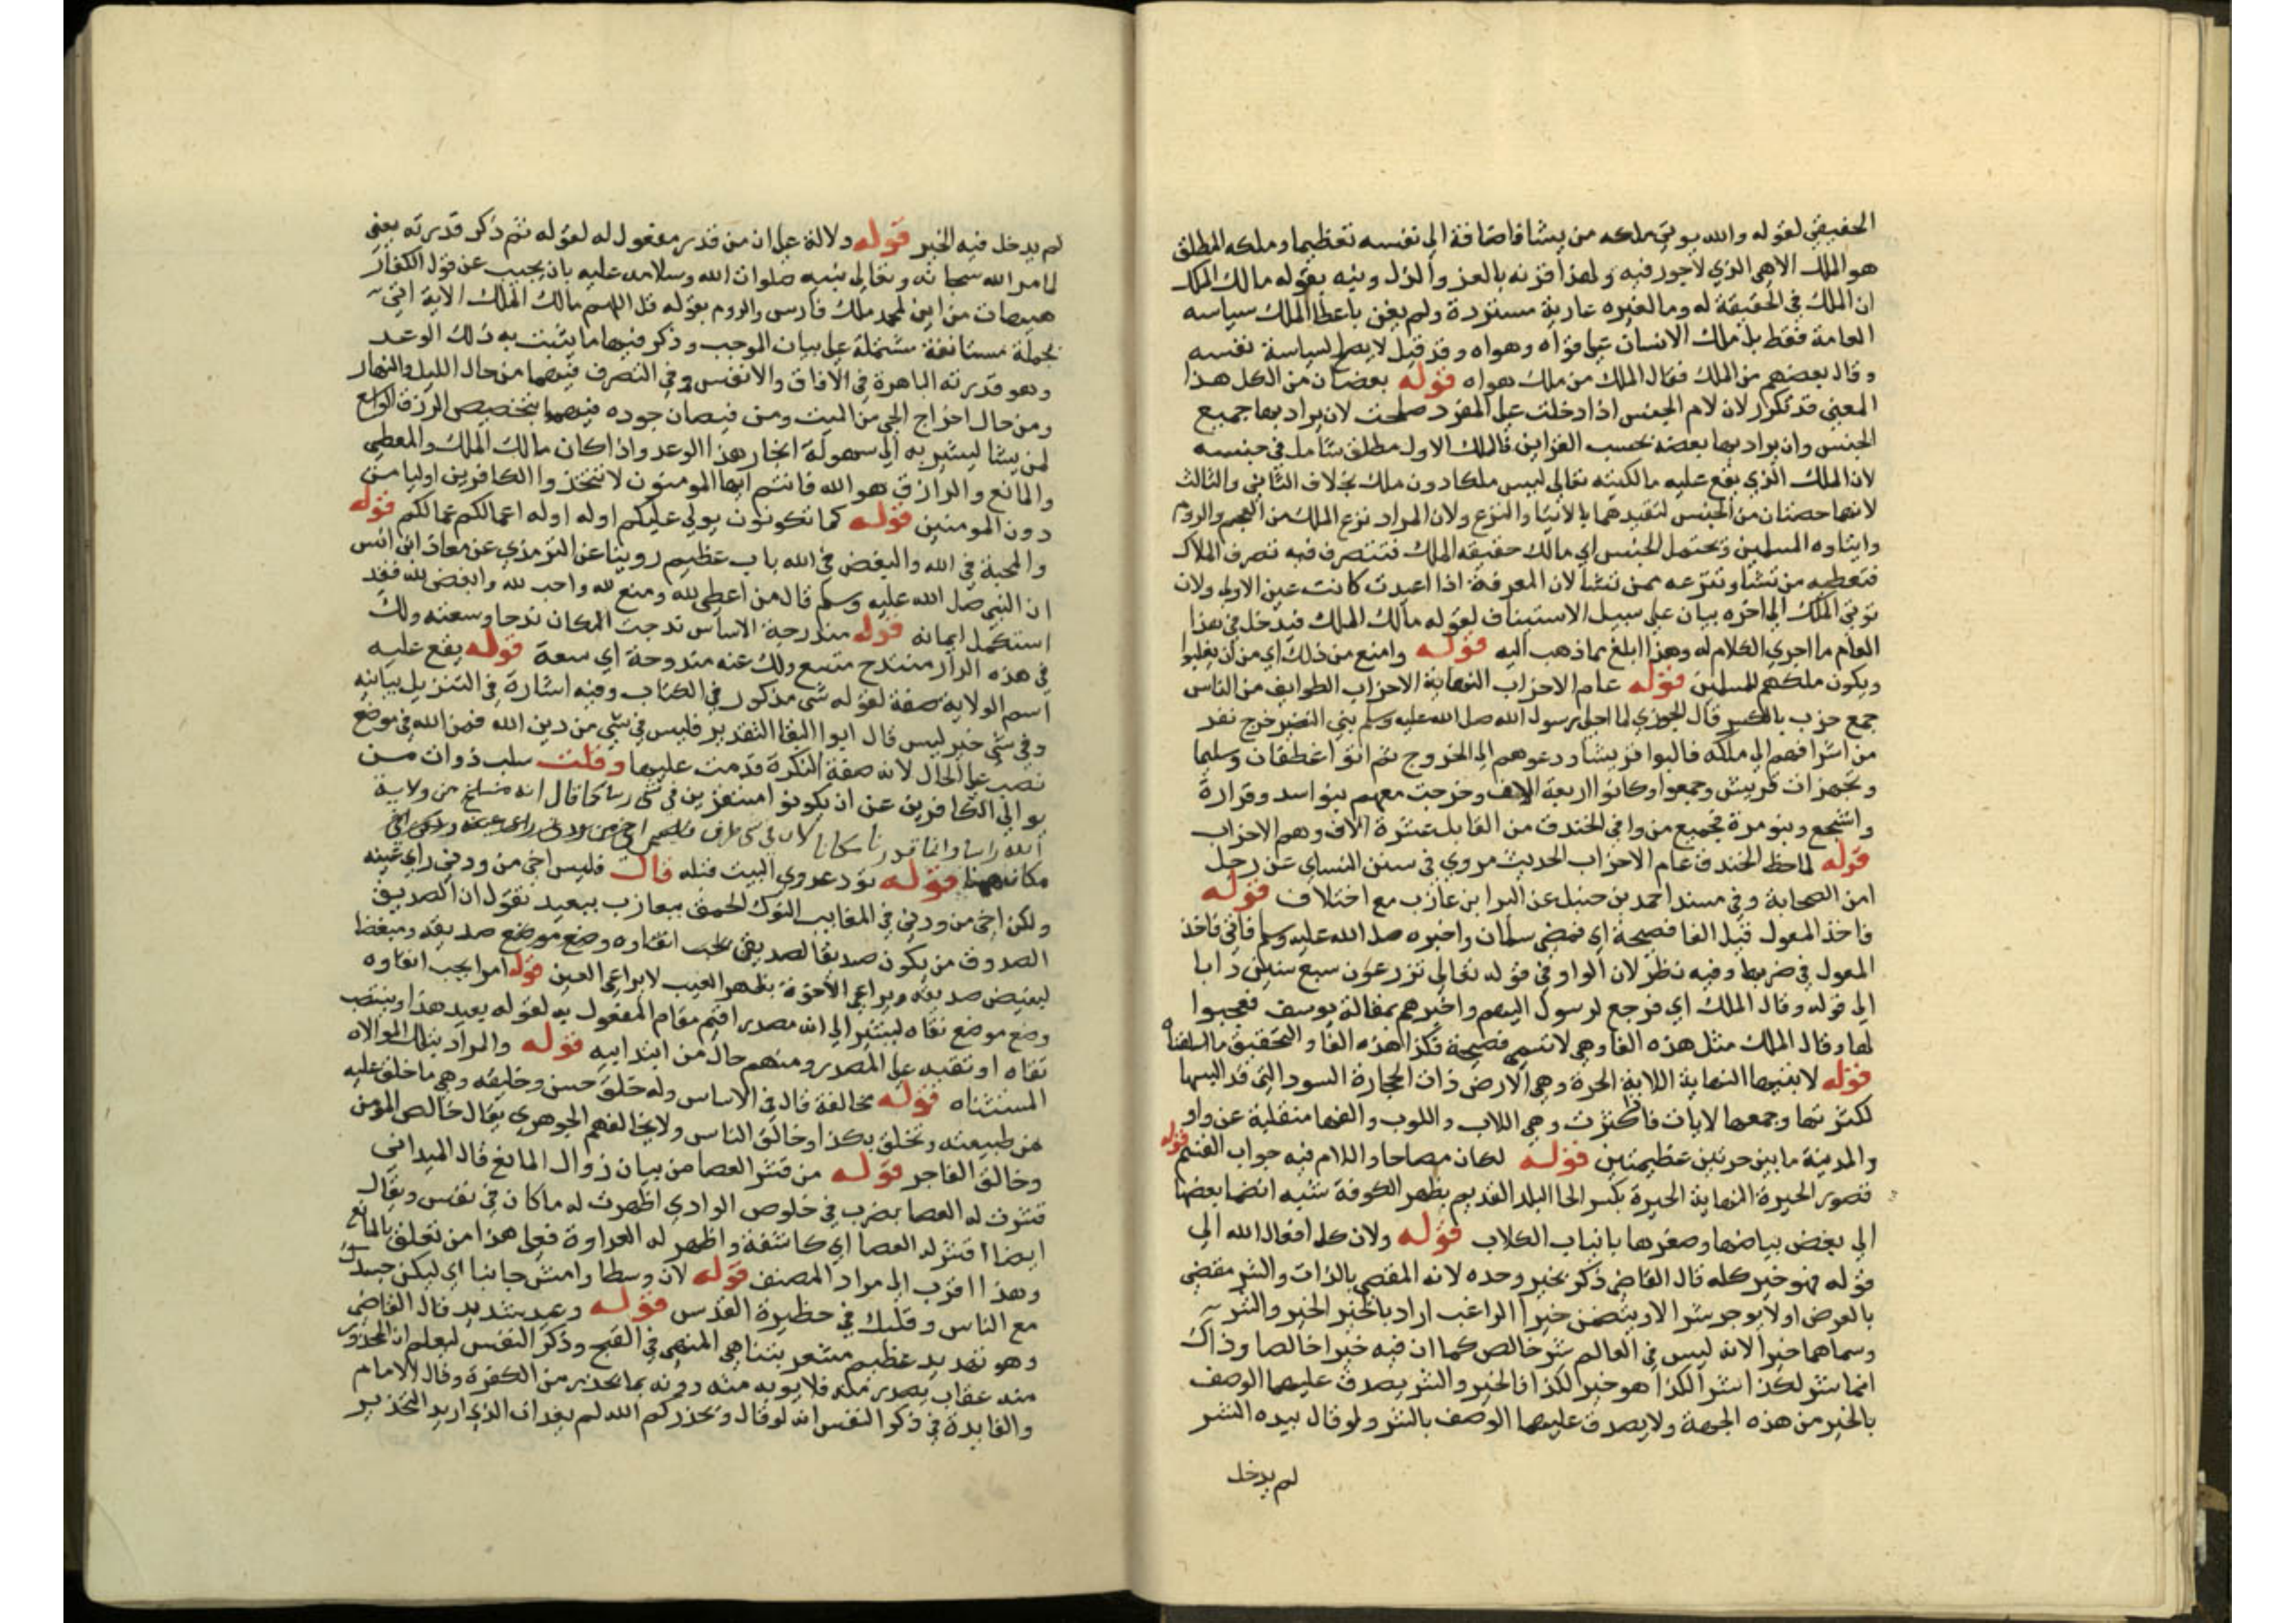 الحقيقي لقوله والله يوتي ملكه من يشا فاضافة الى نفسه تعظيما وملكه المطلق
هو الملك الالهي الذي لا جور فيه ولهذا قرنه بالعز والذل ونبه بقوله مالك الملك
ان الملك في الحقيقة له وما لغيره عارية مستردة ولم يعن باعطا الملك سياسه
العامة فقط بل ملك الانسان على قواه وهواه وقد قيل لا يصلح لسياسة نفسه
وقال بعضهم من الملك فقال الملك من ملك هواه قوله بعضان من الكل هذا
المعني قد تكرر لان لام الجنس اذا دخلت على المفرد صلحت لان يراد بها جميع
الجنس وان يراد بها بعضه بحسب القراين فالملك الاول مطلق شامل في جنسه
لان الملك الذي يقع عليه مالكيته تعالى ليس ملكا دون ملك بخلاف الثاني والثالث
لانهما حصتان من الجنس لتقيدهما بالايتا والنزع ولان المراد نزع الملك من العجم والروم
وايتاوه المسلمين وتحتمل الجنس اي مالك حقيقه الملك فتتصرف فيه تصرف الملاك
فتعطيه من تشا وتنزعه ممن تشا لان المعرفة اذا اعيدت كانت عين الاولى ولان
توتي الملك الى اخره بيان على سبيل الاستيناف لقوله مالك الملك فيدخل في هذا
العام ما اجري الكلام له وهذا ابلغ مما ذهب اليه قوله وامنع من ذلك اي من ان يغلبوا
ويكون ملكهم للمسلمين قوله عام الاحزاب النهاية الاحزاب الطوايف من الناس
جمع حزب بالكسر قال الجوزي لما اجلى رسول الله صلى الله عليه وسلم بني النضير خرج نفر
من اشرافهم الى مكه فالبوا قريشا ودعوهم الى الخروج ثم اتوا غطفان وسليما
وتجهزات قريش وجمعوا وكانوا اربعة الاف وخرجت معهم بنو اسد وفزارة
واشجع وبنو مرة فجميع من وافى الخندق من القبايل عشرة الاف وهم الاحزاب
قوله لما خط الخندق عام الاحزاب الحديث مروي في سنن النساي عن رجل
امن الصحابة وفي مسند احمد بن حنبل عن البرا بن عازب مع اختلاف قوله
فاخذ المعول قيل الفا فصيحة اي فمضى سلمان واخبره صلى الله عليه وسلم فاتى فاخذ
المعول في ضربها وفيه نظر لان الواو في قوله تعالى تزرعون سبع سنين دابا
الى قوله وقال الملك اي فرجع لرسول اليهم واخبرهم بمقالة يوسف فعجبوا
لها وقال الملك مثل هذه الفا وهي لا تسمى فصيحة فكذا هذه الفا والتحقيق ما اسلفناه
قوله لابتيها النهاية اللابة الحرة وهي الارض ذات الحجارة السود التي قد البسها
لكثرتها وجمعها لابات فاذا كثرت وهي اللاب واللوب والفها منقلبة عن واو
والمدينة ما بين حرتين عظيمتين قوله لكان مصباحا واللام فيه جواب القسم قوله
قصور الحيرة النهاية الحيرة بكسر الحا البلد القديم بظهر الكوفة شبه انضما بعضها
الى بعض بياضها وصغرها بانياب الكلاب قوله ولان كل افعال الله الى
قوله فهو خير كله قال القاضي ذكر بخير وحده لانه المقضي بالذات والشر مقضي
بالعرض اولا يوجد شر الا ويتضمن خيرا الراغب اراد بالخير الخير والشر
وسماهما خيرا لانه ليس في العالم شر خالص كما ان فيه خيرا خالصا وذاك
انما شر لكذا شر لكذا هو خير لكذا فالخير والشر يصدق عليهما الوصف
بالخير من هذه الجهة ولا يصدق عليهما الوصف بالشر ولو قال بيده الشر
لم يدخل
لم يدخل فيه الخير قوله دلالة على ان من قدر مفعول له لقوله ثم ذكر قدرته يعني
لما امر الله سبحانه وتعالى نبيه صلوات الله وسلامه عليه بان يجيب عن قول الكفار
هيهات من اين لمحمد ملك فارس والروم بقوله قل اللهم مالك الملك الاية اتي
بجملة مستانفة مشتملة على بيان الموجب وذكر فيها ما يثبت به ذلك الوعد
وهو قدرته الباهرة في الافاق والانفس وفي التصرف فيهما من حال الليل والنهار
ومن حال اخراج الحي من الميت ومن فيضان جوده فيهما بتخصيص الرزق الواسع
لمن يشا ليشير به الى سهولة انجاز هذا الوعد واذا كان مالك الملك والمعطي
والمانع والرازق هو الله فانتم ايها المومنون لا تتخذوا الكافرين اوليا من
دون المومنين قوله كما تكونون يولى عليكم اوله اوله اعمالكم عمالكم قوله
والمحبة في الله والبغض في الله باب عظيم روينا عن الترمذي عن معاذ ابن انس
ان النبي صلى الله عليه وسلم قال من اعطى لله ومنع لله واحب لله وابغض لله فقد
استكمل ايمانه قوله مندرجة الاساس ندحت المكان ندحا وسعته ولك
في هذه الدار منتدح متسع ولك عنه مندوحة اي سعة قوله يقع عليه
اسم الولاية صفة لقوله شي مذكور في الكتاب وفيه اشارة في التنزيل بيانيه
وفي شي خبر ليس قال ابوا البقا التقدير فليس في شي من دين الله فمن الله في موضع
نصب على الحال لانه صفة النكرة قدمت عليها وقلت سلب ذوات من
يوالى الكافرين عن ان يكونوا مستعزين في شي راسا كما قال انه منسلخ من ولاية
الله راسا وانما قدر
مكانه هنا قوله تود عدوي البيت قبله قال فليس اخي من ودني راي عينه
ولكن اخي من ودني في المغايب النوك الحمق بعازب ببعيد تقول ان الصديق
الصدوق من يكون صديقا لصديق يجب اتقاوه وضع موضع صديقه ومبغضا
لبغيض صديقه ويراعي الاخوة بظهر الغيب لا براى العين قوله امرا يجب اتقاوه
وضع موضع تقاه ليشير الى انه مصدر اقيم مقام المفعول به لقوله بعيد هذا وينتصب
تقاه او تقيه على المصدر ومنهم حال من ابتداييه قوله والمراد بتلك الموالاه
المستثناه قوله مخالفة قال في الاساس وله خلق حسن وخليقه وهي ما خلق عليه
من طبيعته وتخلق بكذا وخالق الناس ولا تخالفهم الجوهري يقال خالص المومن
وخالق الفاجر قوله من قشر العصا من بيان زوال المانع قال الميداني
قشرت له العصا يضرب في خلوص الوادي اظهرت له ما كان في نفسي ويقال
ايضا اقشر له العصا اي كاشفه واظهر له العداوة فعلى هذا من تعلق بالمانع
وهذا اقرب الى مراد المصنف قوله لان وسطا وامش جانبا اي ليكن جسدك
مع الناس وقلبك في حظيرة القدس قوله وعيد شديد قال القاضي
وهو تهديد عظيم مشعر بتناهي المنهي في القبح وذكر النفس ليعلم ان المحذور
منه عقاب يصدر منه فلا يوبه منه دونه بما يحذر من الكفرة وقال الامام
والفايدة في ذكر النفس انه لو قال ويحذركم الله لم يفد ان الذي اريد التحذير